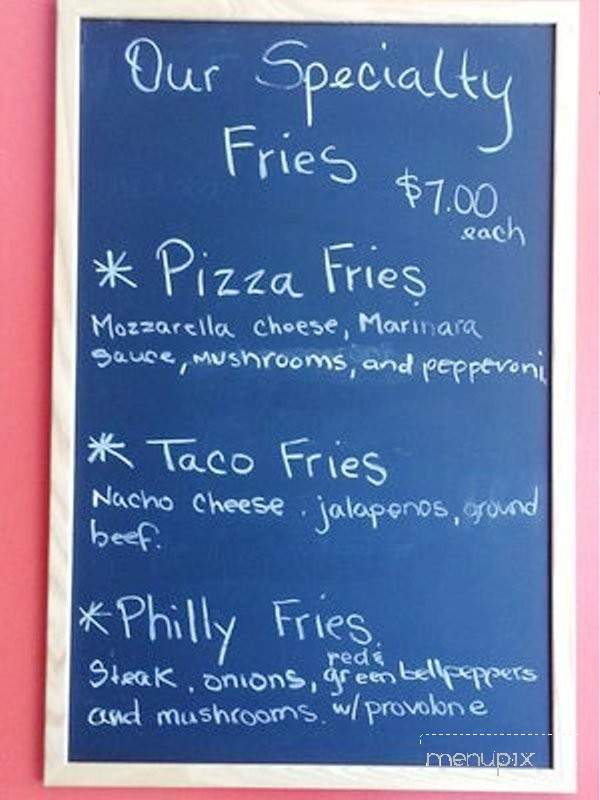 Our Specialty
Fries
$7.00
each
* Pizza Fries
Mozzarella cheese, Marinara
sauce, mushrooms, and pepperoni
* Taco Fries
Nacho cheese, jalapenos, ground
beef.
* Philly Fries
Steak, onions, red & green bellpeppers
and mushrooms. w/ provolone
menupix